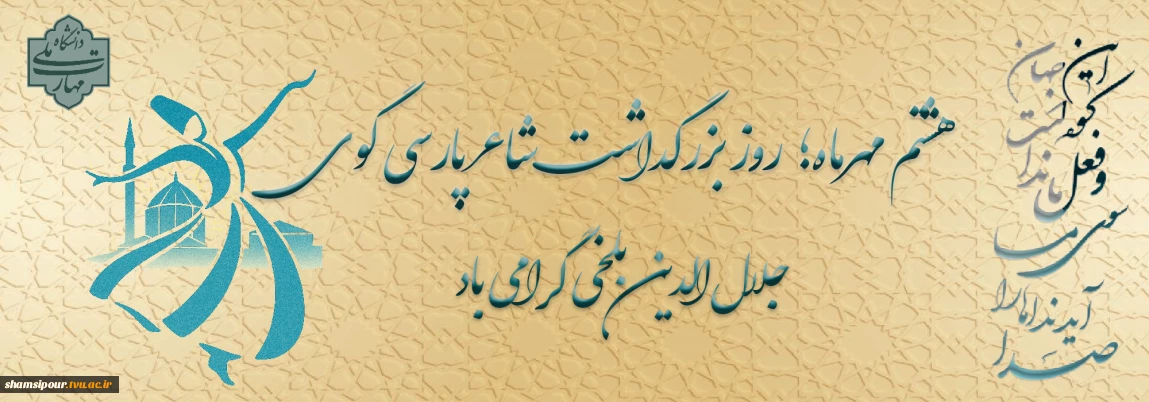 دانشگاه
ملی
مهارت
هشتم مهرماه؛ روز بزرگداشت شاعر پارسی گوی
جلال الدین بلخی گرامی باد
این جهان
کوه است
و فعل ما ندا
سوی ما
آید نداها را
صدا
shamsipour.tvu.ac.ir